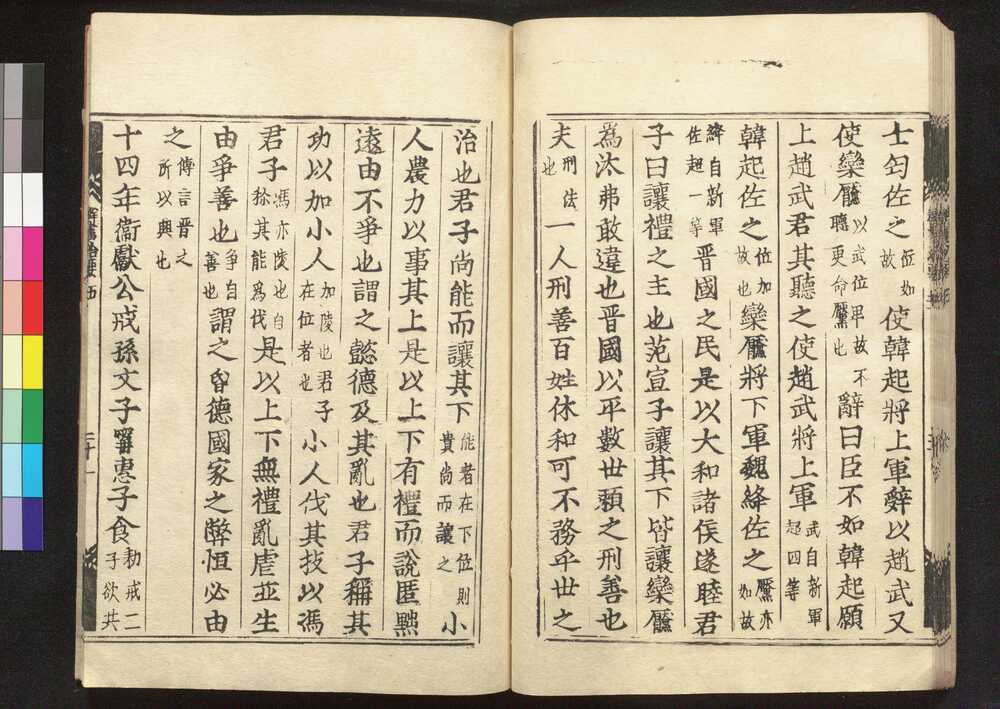 士匄佐之位如故使韓起將上軍辭以趙武又
使欒黶以武位卑故不聽更命黶也辭曰臣不如韓起願
上趙武君其聽之使趙武將上軍武自新軍超四等
韓起佐之位如故也欒黶將下軍魏絳佐之黶亦如故
絳自新軍佐超一等晉國之民是以大和諸侯遂睦君
子曰讓禮之主也范宣子讓其下皆讓欒黶
為汰弗敢違也晉國以平數世賴之刑善也
夫刑法也一人刑善百姓休和可不務乎世之
治也君子尚能而讓其下能者在下位則貴尚而讓之小
人農力以事其上是以上下有禮而讒慝黜
遠由不爭也謂之懿德及其亂也君子稱其
功以加小人加陵也君子在位者也小人伐其技以馮
君子馮亦陵也自稱其能為伐是以上下無禮亂虐並生
由爭善也爭自善也謂之昏德國家之弊恒必由
之傳言晉之所以興也
十四年衛獻公戒孫文子甯惠子食勑戒二子欲共